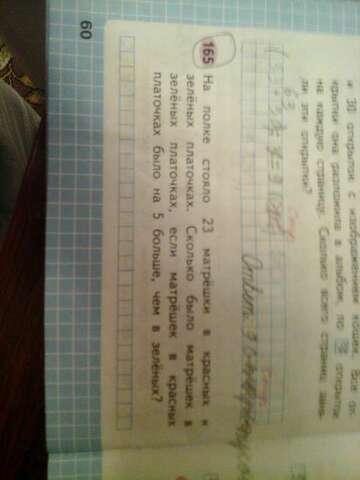 и 30 открыток с изображением кошек. Все от-
крытки она разложила в альбом, по открытки
на каждую страницу. Сколько всего страниц заня-
ли эти открытки?
165 На полке стояло 23 матрёшки в красных и
зелёных платочках. Сколько было матрёшек в
зелёных платочках, если матрёшек в красных
платочках было на 5 больше, чем в зелёных?
60